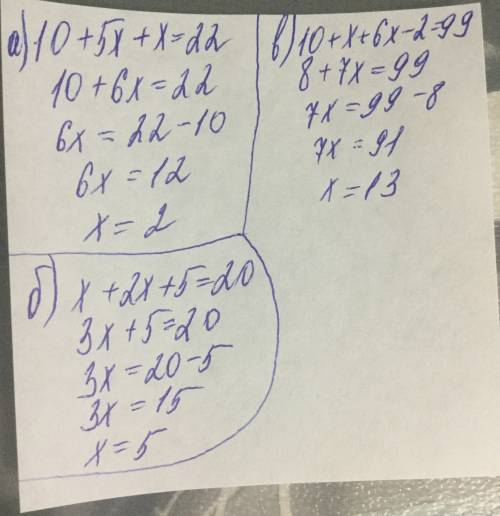 а) 10 + 5x + x = 22
10 + 6x = 22
6x = 22 - 10
6x = 12
x = 2
б) x + 2x + 5 = 20
3x + 5 = 20
3x = 20 - 5
3x = 15
x = 5
в) 10 + x + 6x - 2 = 99
8 + 7x = 99
7x = 99 - 8
7x = 91
x = 13